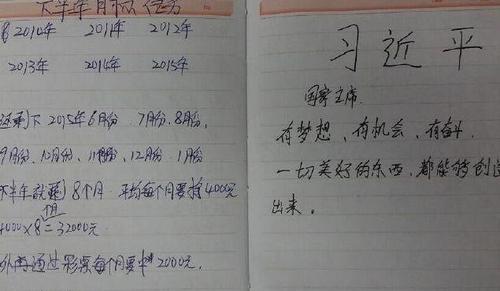 下半年目标任务
2010年 2011年 2012年
2013年 2014年 2015年
还剩下 2015年6月份 7月份、8月份、
9月份、10月份、11月份、12月份、1月份
下半年就剩8个月 平均每个月要挣4000元
4000×8=32000元
另外再通过彩票每个月要中2000元.
习近平
国家主席.
有梦想、有机会、有奋斗.
一切美好的东西,都能够创造
出来。